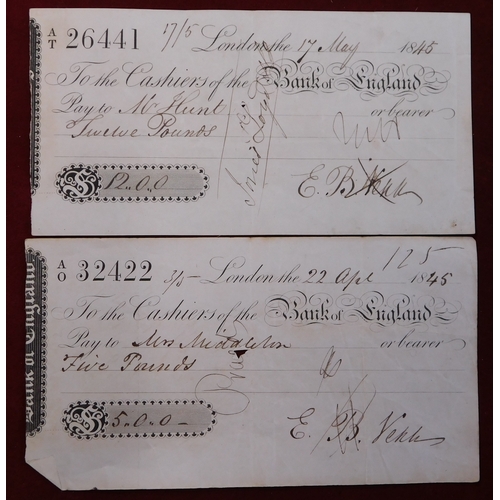 A/T 26441 17/5 London the 17 May 1845
To the Cashiers of the Bank of England
Pay to Mr Hunt or bearer
Twelve Pounds
£ 12..0..0 E. B.
Bank of England
A/O 32422 3/5 London the 22 Apl 1845
125
To the Cashiers of the Bank of England
Pay to Mrs Middleton or bearer
Five Pounds
£ 5..0..0 E. B.